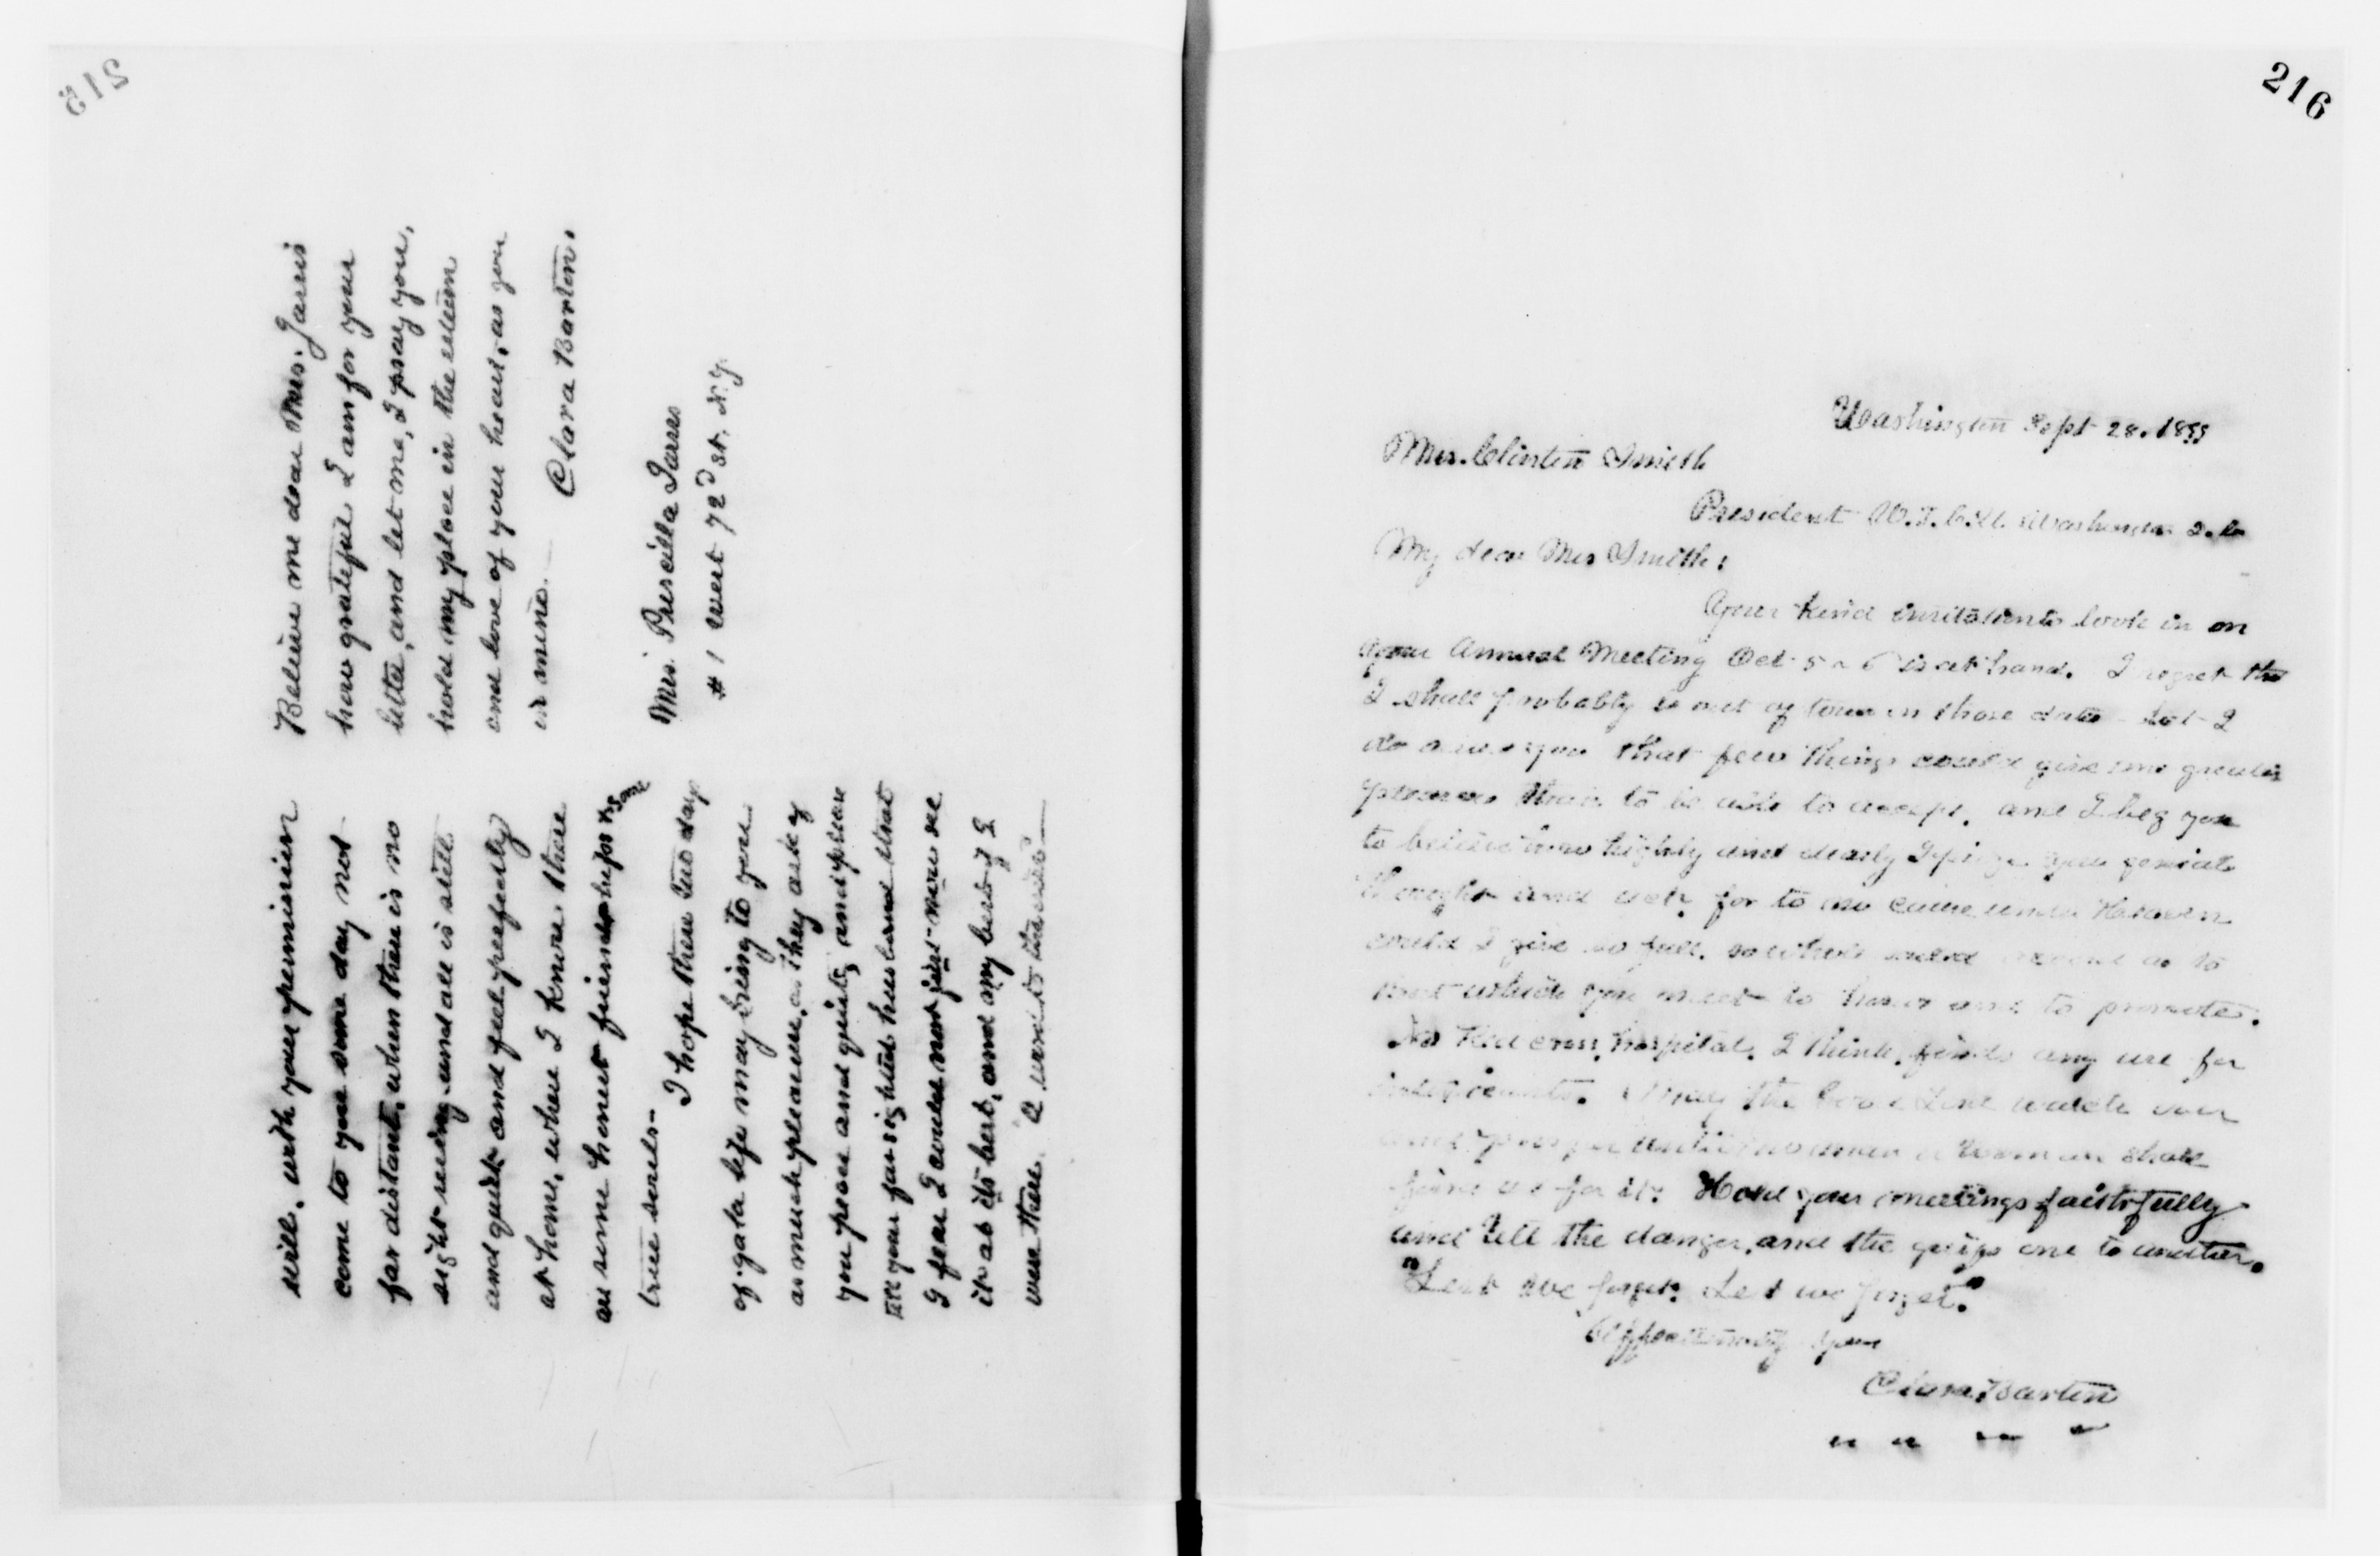 215
will, with your permission
come to you some day not
far distant, when there is no
sight seeing and all is still
and quiet and feel perfectly
at home, where I know there
are some honest friendships for some
true souls—
I hope these two days
of gala life may bring to you
as much pleasure, as they ask of
you peace and quiet, and please
tell your far sighted husband that
I fear I could not just now see
it as its hero, and my being I
were there.
Believe me dear Mrs. Jarvis
how grateful I am for your
letter, and let me, I pray you,
hold my place in the esteem
and love of your heart, as you
in mine.
Clara Barton.
Mrs. Priscilla Jarvis
# 1 West 72d St. N.Y.
216
Washington Sept 28. 1899
Mrs. Clinton Smith
President W.T.C.U. Washington D.C.
My dear Mrs Smith:
Your kind invitation to look in on
your Annual Meeting Oct 5 & 6 is at hand. I regret that
I shall probably be out of town on those dates but I
do assure you that few things could give me greater
pleasure than to be able to accept, and I beg you
to believe how highly and dearly I prize your genial
thought and for to no cause under Heaven
could I give so full, so whole accord as to
that which you meet to honor and to promote.
No Red Cross hospital, I think, finds any use for
May the Good Lord watch over
and until no man or woman shall
find use for it. Hold your meetings faithfully
and tell the danger, and the one to another.
"Lest we forget. Lest we forget."
Affectionately yours
Clara Barton